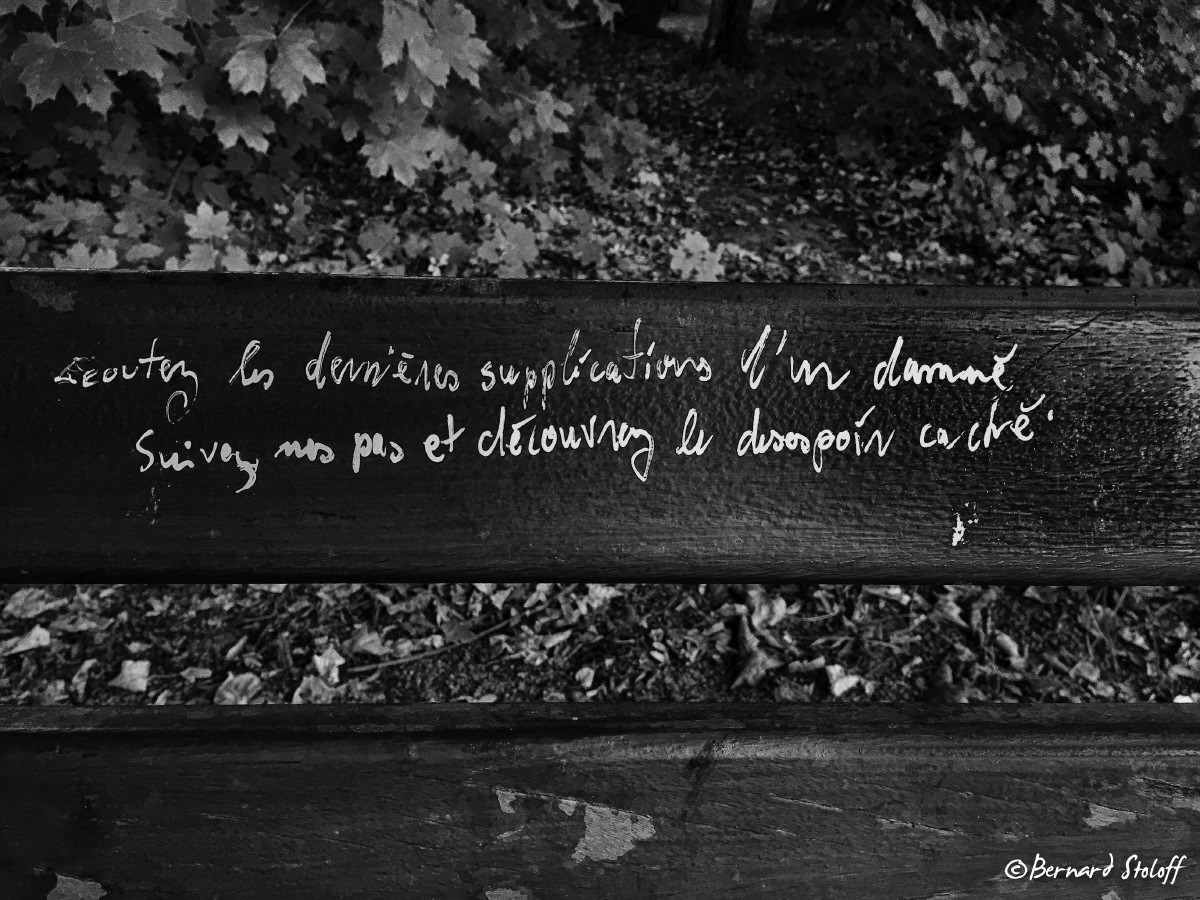 Ecoutez les dernières supplications d'un damné
Suivez nos pas et découvrez le desespoir caché.
©Bernard Stoloff